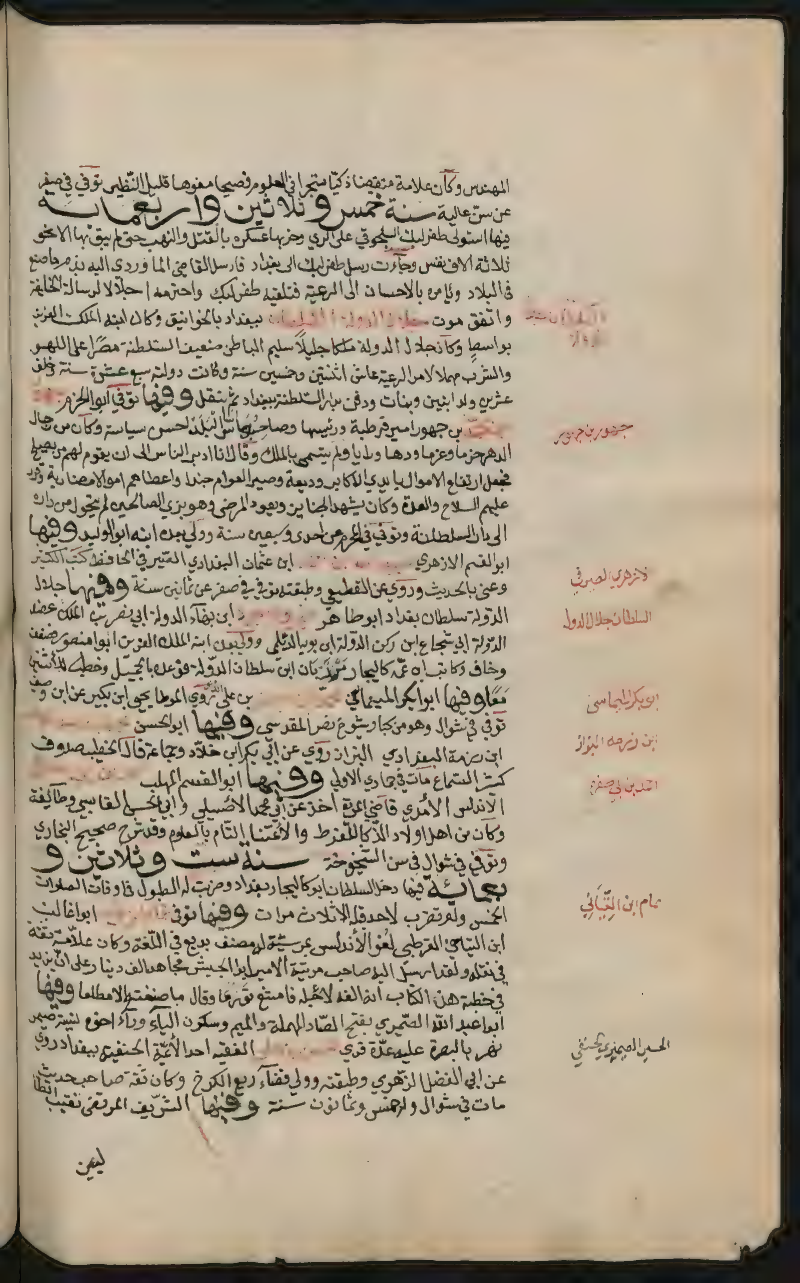 المهندس وكان علامة متفننا ذكيا متبحرا في العلوم فصيحا مفوها قليل النظير توفي في صفر
عن سن عالية سنة خمس وثلاثين واربعمائة
فيها استولى طغرلبك السلجوقي على الري وخربها عسكره بالقتل والنهب حتى لم يبق بها الا نحو
ثلاثة الاف نفس وجاءت رسل طغرلبك الى بغداد فارسل القاضي الماوردي اليه يذم ما صنع
في البلاد ويامره بالاحسان الى الرعية فتلقيه طغرلبك واحترمه اجلالا لرسالة الخليفة
واتفق موت جلال الدولة السلطان ببغداد بالخوانيق وكان ابنه الملك العزيز
بواسط وكان جلال الدولة ملكا جليلا سليم الباطن ضعيف السلطنة مصرا على اللهو
والشرب مهملا لامر الرعية عاش اثنتين وخمسين سنة وكانت دولته سبع عشرة سنة وخلف
عشرين ولدا بنين وبنات ودفن بدار السلطنة ببغداد ثم نقل وفيها توفي ابو الحزم
بن جهور امير قرطبة ورئيسها وصاحبها ساس البلد احسن سياسة وكان من رجال
الدهر حزما وعزما ودها ورايا ولم يتسمى بالملك وقال انا ادبر الناس الى ان يقوم لهم من يصلح
فجعل ارتفاع الاموال بايدي الاكابر وديعة وصير العوام جندا واعطاهم اموالا مضاربة وفرد
عليهم السلاح والعدة وكان يشهد الجنايز ويعود المرضى وهو بزي الصالحين لم يتحول من داره
الى دار السلطنة وتوفي في المحرم عن احدى وسبعين سنة وولي بعده ابنه ابو الوليد وفيها
ابو القسم الازهري ابن عثمان البغدادي الصيرفي الحافظ كتب الكثير
وعنى بالحديث وروى عن القطيعي وطبقته توفي في صفر عن ثمانين سنة وفيها جلال
الدولة سلطان بغداد ابو طاهر ابن بهاء الدولة ابي نصر بن الملك عضد
الدولة ابي شجاع ابن ركن الدولة ابن بويه الديلمي وولي بعده ابنه الملك العزيز ابو منصور فضعف
وخاف وكاتب ابن عمه كاليجار ابن سلطان الدولة فوعده بالجميل وخطب للاثنين
معا وفيها ابو بكر الميماسي بن علي الذي روى الموطا يحيى ابن بكير عن ابن وصيف
توفي في شوال وهو من كبار شيوخ نصر المقدسي وفيها ابو الحسن
ابن رزمة البغدادي البزاز روى عن ابي بكر ابن خلاد وجماعة قال الخطيب صدوق
كثير السماع مات في جمادى الاولى وفيها ابو القسم المهلب
الاندلسي الاسدي قاضي المرية اخذ عن ابي محمد الاصيلي وابي الحسن القابسي وطائفة
وكان من اهل اولاد الذكا المفرط والاعتنا التام بالعلوم وقد شرح صحيح البخاري
وتوفي في شوال في سن الشيخوخة سنة ست وثلاثين و
بعمائة فيها دخل السلطان ابو كاليجار بغداد وضربت له الطبول في اوقات الصلوات
الخمس ولم تضرب لاحد قبله الا ثلاث مرات وفيها توفي ابو غالب
ابن التياني القرطبي لغوي الاندلس بمرسية له مصنف بديع في اللغة وكان علامة ثقة
في نقله ولقد ارسل اليه صاحب مرسية الامير ابو الجيش مجاهد الف دينار على ان يزيد
في خطبة هذا الكتاب انه الفه لاجله فامتنع تورعا وقال ما صنفته الا مطلقا وفيها
ابو عبد الله الصيمري بفتح الصاد المهملة والميم وسكون الياء وراء اخره نسبة صيمر
نهر بالبصرة عليه عدة قرى الفقيه احد الائمة الحنفية ببغداد روى
عن ابي الفضل الزهري وطبقته وولي قضاء ربع الكرخ وكان ثقة صاحب حديث
مات في شوال وله خمس وثمانون سنة وفيها الشريف المرتضى نقيب الطا
لبيين
جهور بن جهور
الازهري الصيرفي
السلطان جلال الدولة
ابو بكر الميماسي
ابن رزمه البزاز
احمد بن ابي صفرة
تمام ابن التياني
الحسين الصيمري الحنفي